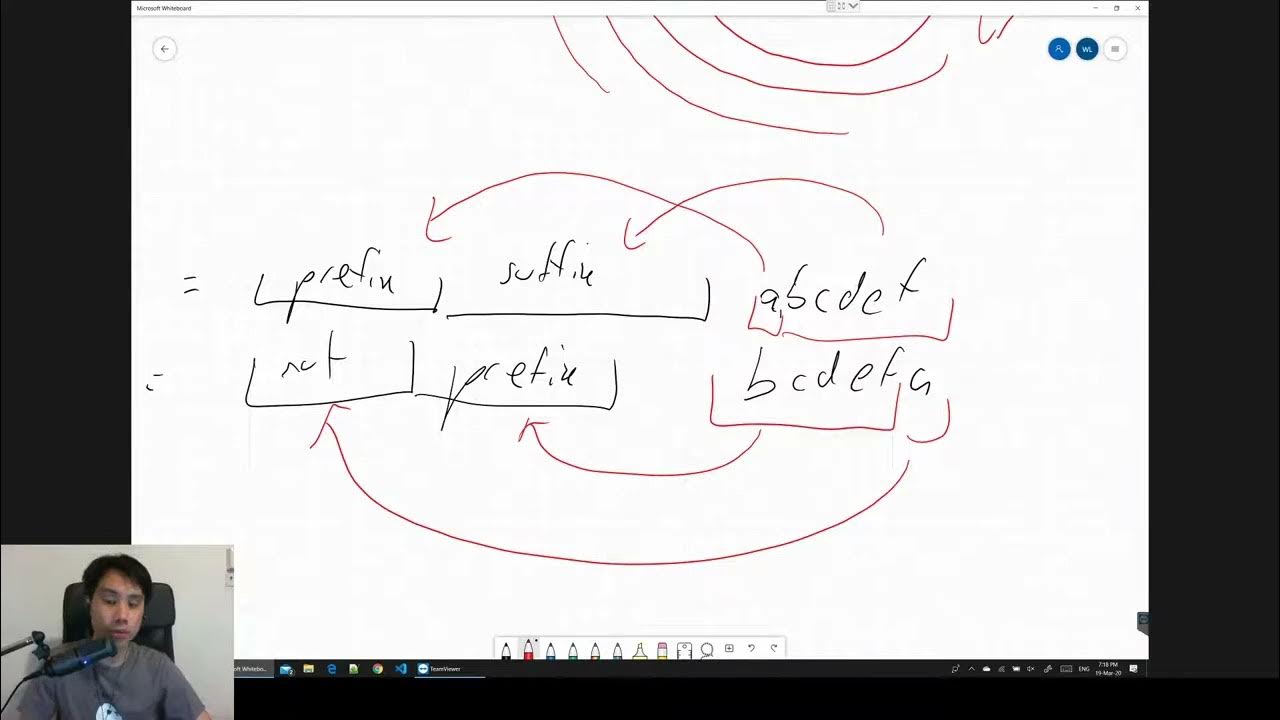 Microsoft Whiteboard
WL
= prefix suffix abcdef
= prefix bcdefa
oft Whiteboa...
TeamViewer
ENG
7:18 PM
19-Mar-20